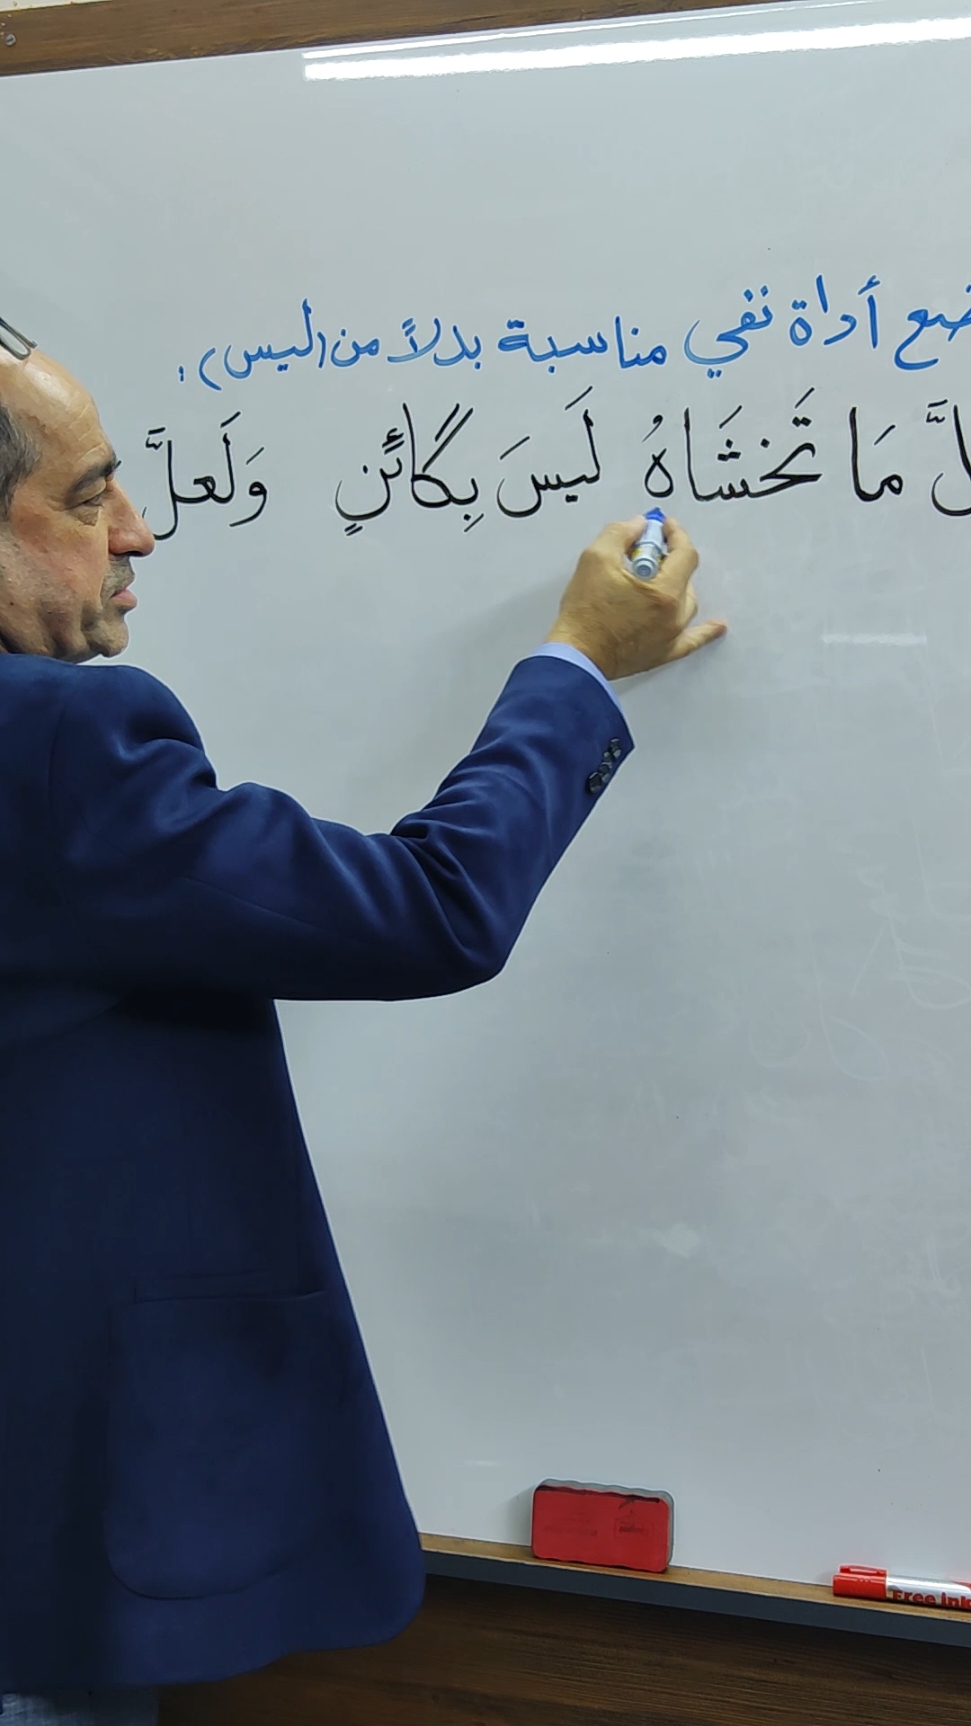 ضع أداة نفي مناسبة بدلاً من (ليس):
لَّ مَا تَخشَاهُ لَيسَ بِكَائنٍ وَلَعلَّ
Free Ink